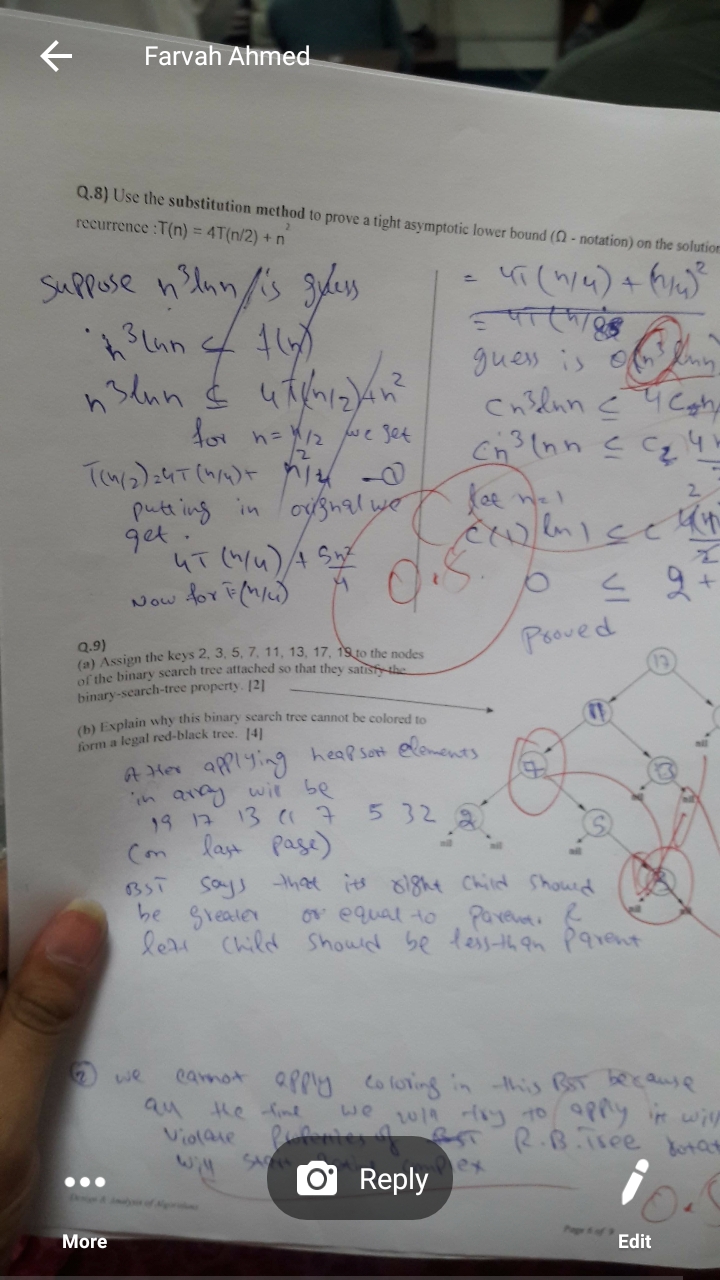 Farvah Ahmed
Q.8) Use the substitution method to prove a tight asymptotic lower bound (Ω - notation) on the solution
recurrence :T(n) = 4T(n/2) + n²
suppose n³lnn is guess
n³lnn ≤ f(n)
n³lnn ≤ 4T(n/2)+n²
for n = n/2 we get
T(n/2)=4T(n/4)+ n²/4 —①
putting in orignal we
get.
4T(n/4) + 5n²/4
Now for T=(n/4)
= 4T(n/4) + (n/4)²
= 4T(n/8
guess is θ(n³lnn)
cn³lnn ≤
cn³lnn ≤
let n=1
c(1) ln1 ≤ c
0 ≤ 2 +
Proved
0.5
Q.9)
(a) Assign the keys 2, 3, 5, 7, 11, 13, 17, 19 to the nodes
of the binary search tree attached so that they satisfy the
binary-search-tree property. [2]
(b) Explain why this binary search tree cannot be colored to
form a legal red-black tree. [4]
17
11
7
13
2
5
3
nil
nil
nil
nil
nil
After applying heapsort elements
in array will be
19 17 13 11 7 5 3 2
(on last page)
BST says that its right child should
be greater or equal to parent. &
left child should be less than parent
② we cannot apply coloring in this BST because
all the time we will try to apply it will
violate Properties of R.B.Tree
will
Design & Analysis of Algorithms
Page 6 of 9
0.5
Reply
More
Edit